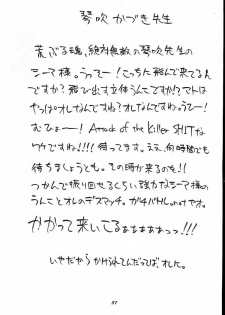 琴吹かづき先生
荒ぶる魂、絶対無敵の琴吹先生の
シーマ様。うってー!こっちに飛んで来てるん
ですか?飛び出す立体うんですか?マトは
やっぱオレなんですね?オレなんですね。うてー!
むひょー! Attack of the Killer SHITな
ワケですね!!!待ってます。ええ、何時間でも
待ちましょうとも。その時が来るのを!!
つかんで振り回せるくらい強力なシーマ様の
うんことオレのデスマッチ。ガチバトル。
かかって来いてるぁぁぁぁぁっっ!!!
いやだから かけられてんだってば、オレに。
37